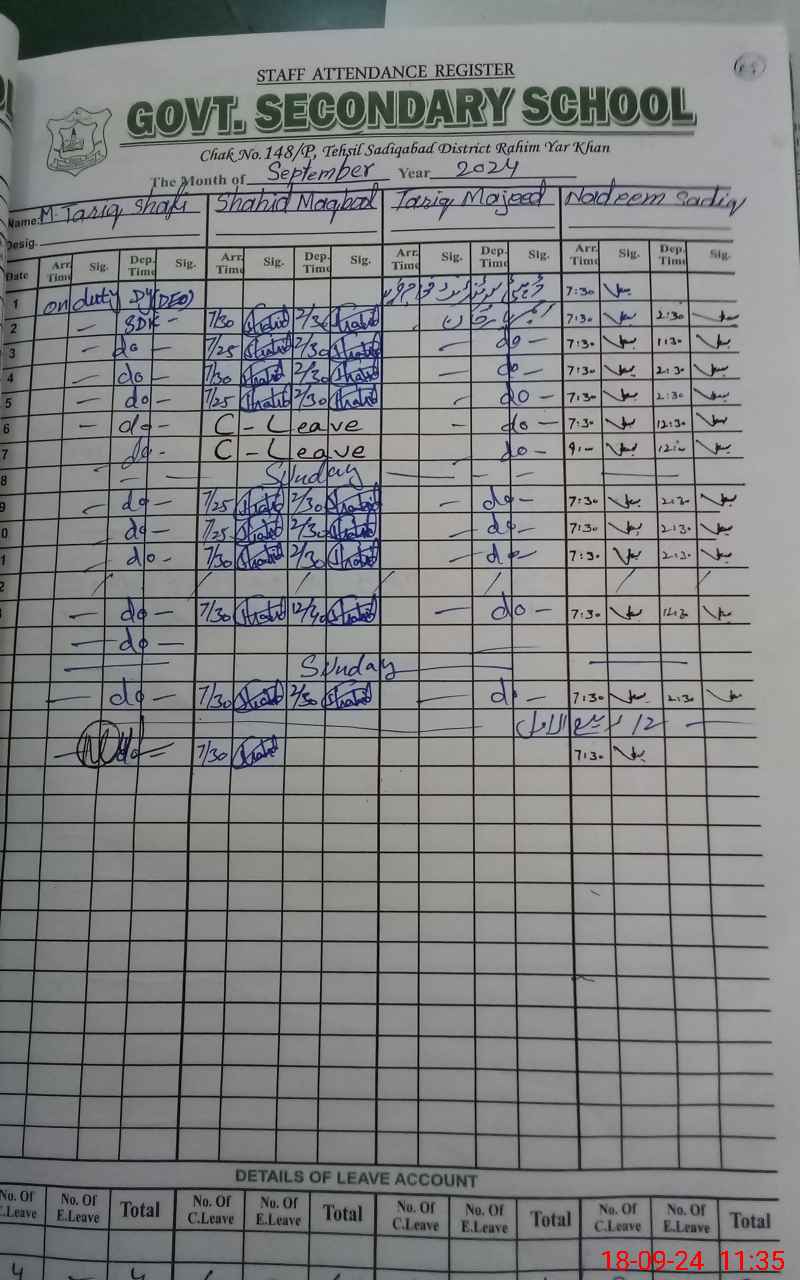 STAFF ATTENDANCE REGISTER
GOVT. SECONDARY SCHOOL
Chak No.148/P, Tehsil Sadiqabad District Rahim Yar Khan
The Month of September Year 2024
Name: M. Tariq Shafi Shahid Maqbool Tariq Majeed Nadeem Sadiq
Desig.
Date Arr. Time Sig. Dep. Time Sig. Arr. Time Sig. Dep. Time Sig. Arr. Time Sig. Dep. Time Sig. Arr. Time Sig. Dep. Time Sig.
1 on duty Dy(DEO) 7:30
2 — SDK — 7/30 Shahid 2/30 Shahid 7:30 2:30
3 — do — 7/25 Shahid 2/30 Shahid — do — 7:30 1:30
4 — do — 7/30 Shahid 2/30 Shahid — do — 7:30 2:30
5 — do — 7/25 Shahid 2/30 Shahid — do — 7:30 2:30
6 — do — C - Leave — do — 7:30 12:30
7 do - C - Leave do —
8 — — Sunday — — —
9 — do — 7/25 Shahid 2/30 Shahid — do — 7:30 2:30
0 — do — 7/25 Shahid 2/30 Shahid — do — 7:30 2:30
1 — do - 7/30 Shahid 2/30 Shahid — do — 7:30 2:30
2 / / / / / / /
— do — 7/30 Shahid Shahid — do - 7:30
— do —
Sunday
— do — 7/30 Shahid 2/30 Shahid — do — 7:30 2:30
12 ربیع الاول
do = 7/30 Shahid 7:30
DETAILS OF LEAVE ACCOUNT
No. Of C.Leave No. Of E.Leave Total No. Of C.Leave No. Of E.Leave Total No. Of C.Leave No. Of E.Leave Total No. Of C.Leave No. Of E.Leave Total
4 — 4
18-09-24 11:35